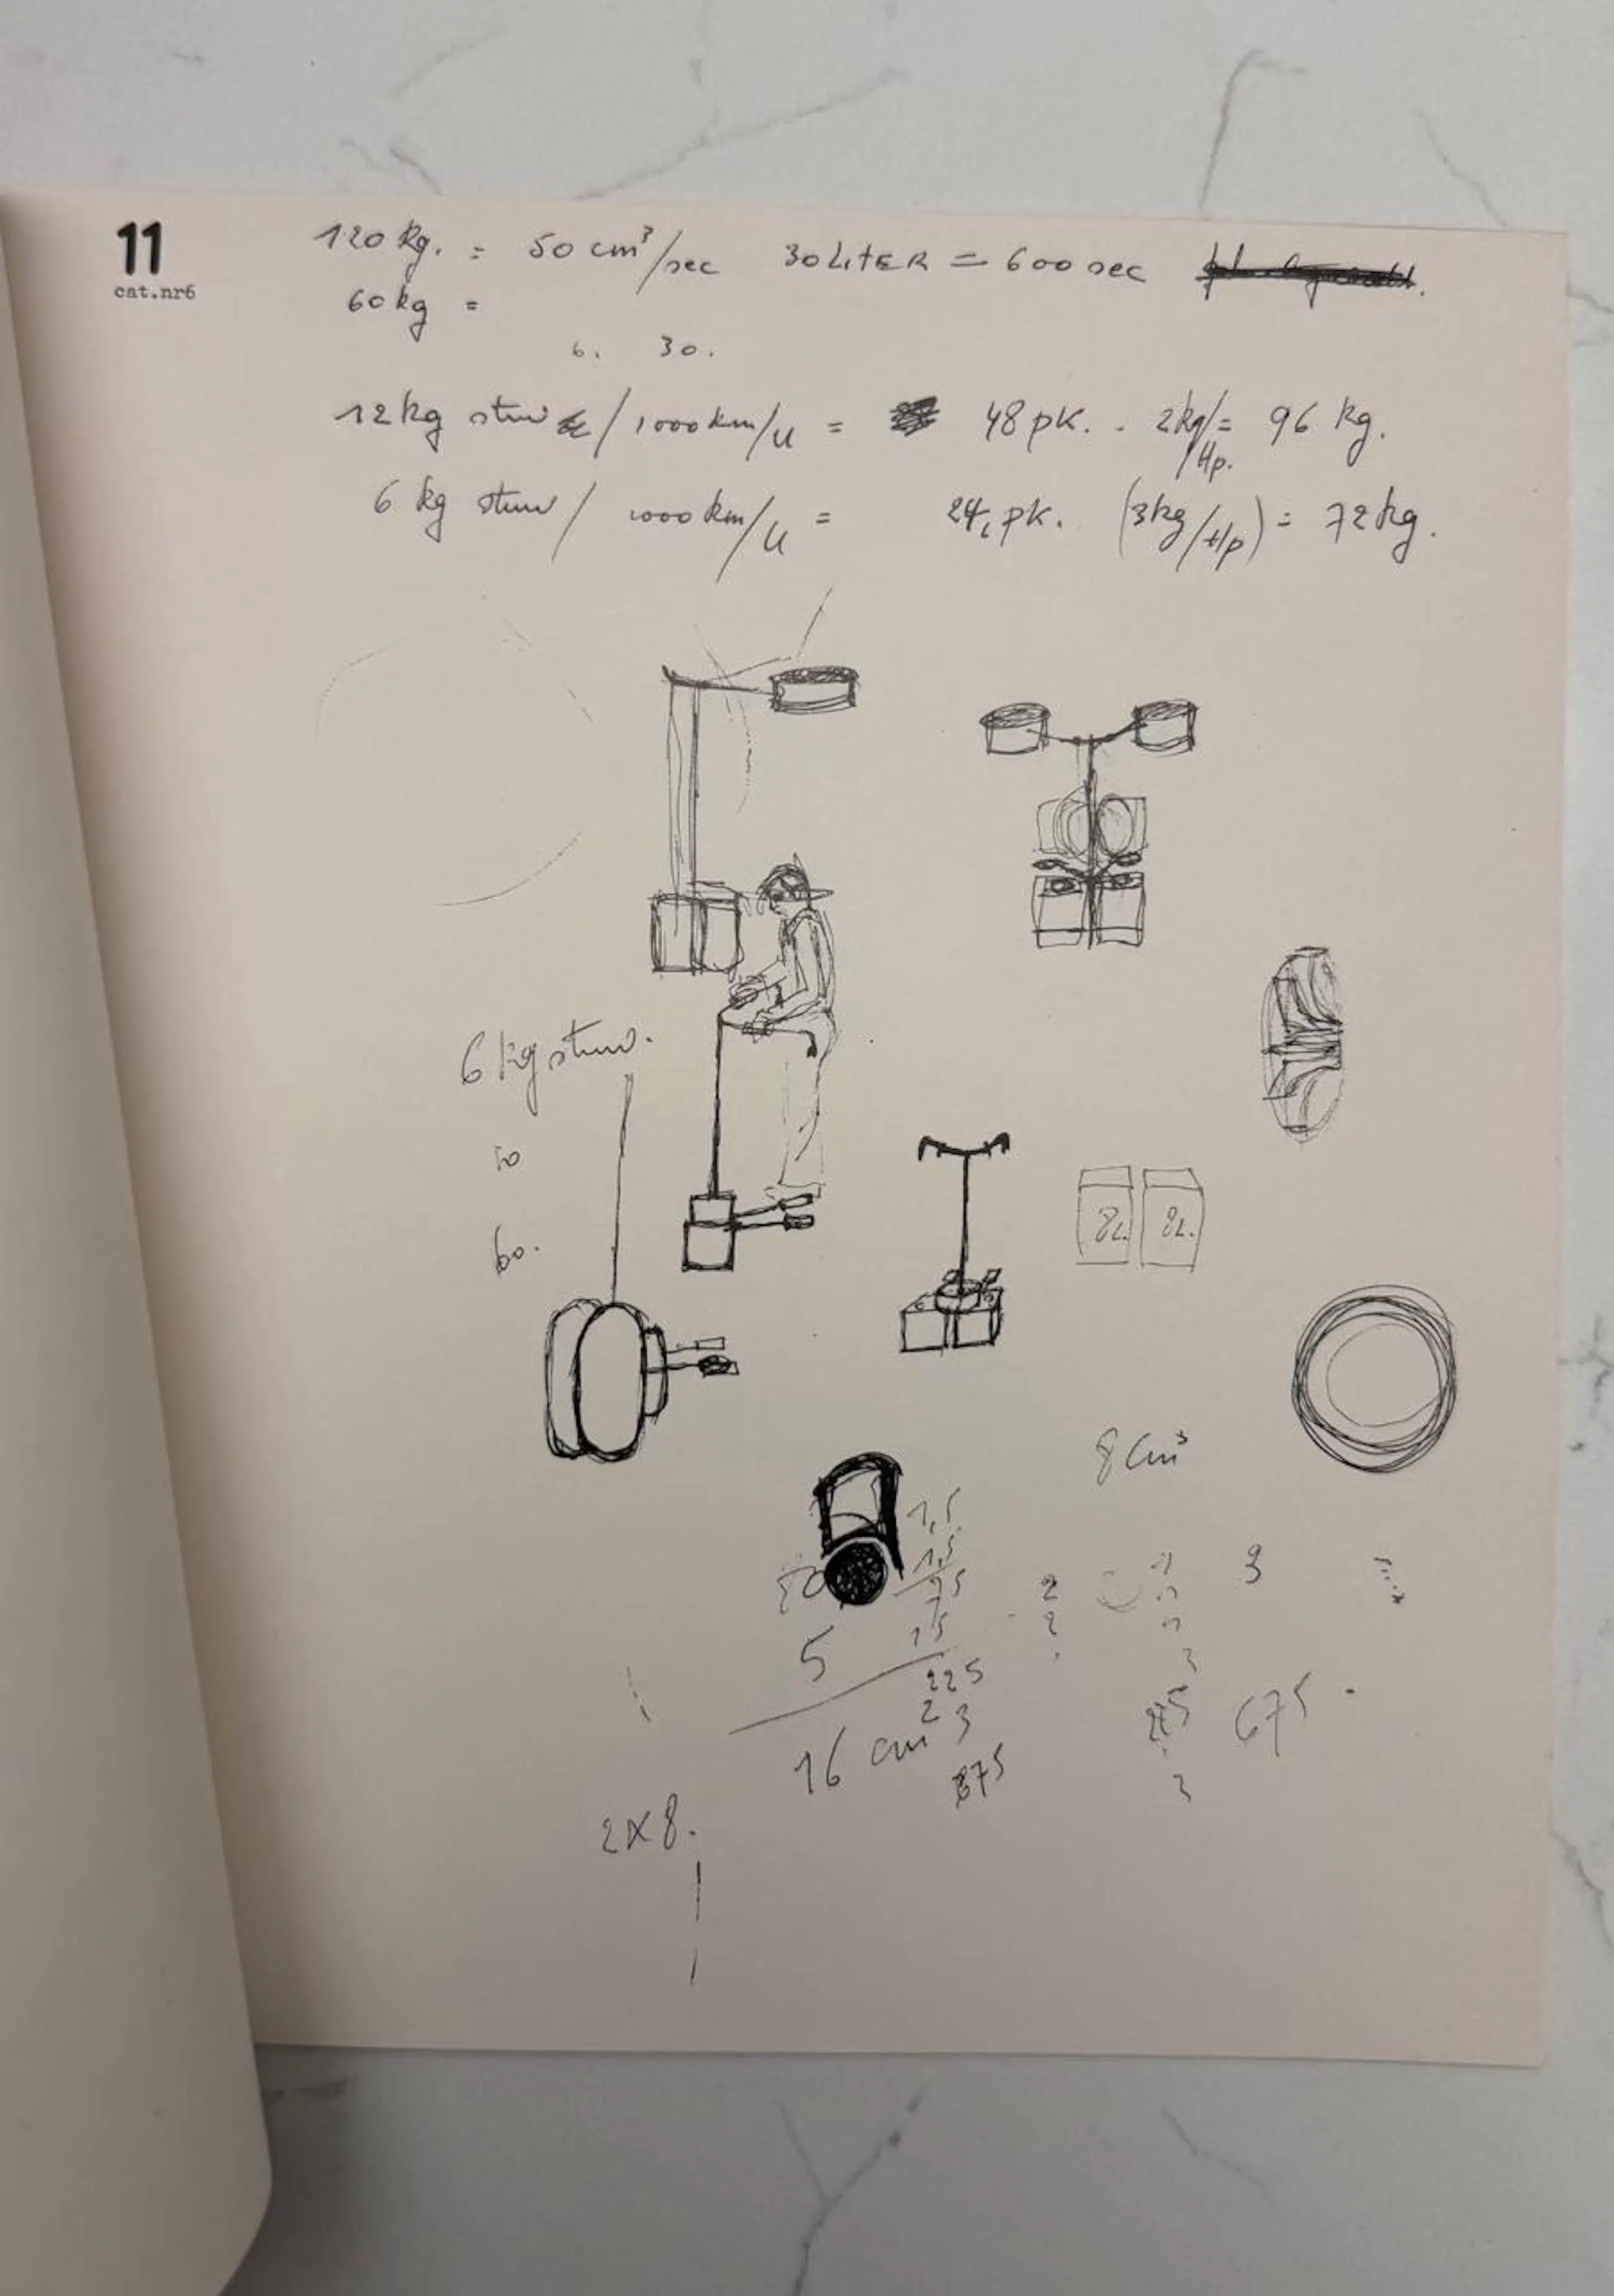 11
cat.nr6
120 kg. = 50 cm³/sec 30 LITER = 600 sec
60 kg =
6. 30.
12 kg stuw / 1000 km/u = 48 pk. - 2kg/Hp. = 96 kg.
6 kg stuw / 1000 km/u = 24, pk. (3kg/Hp) = 72 kg.
6 kg stuw.
10
60.
8L. 8L.
8 cm³
1,5
1,5
75
15
225
3
675
5
16 cm³
2
2
3
3
225
675
3
2X8.